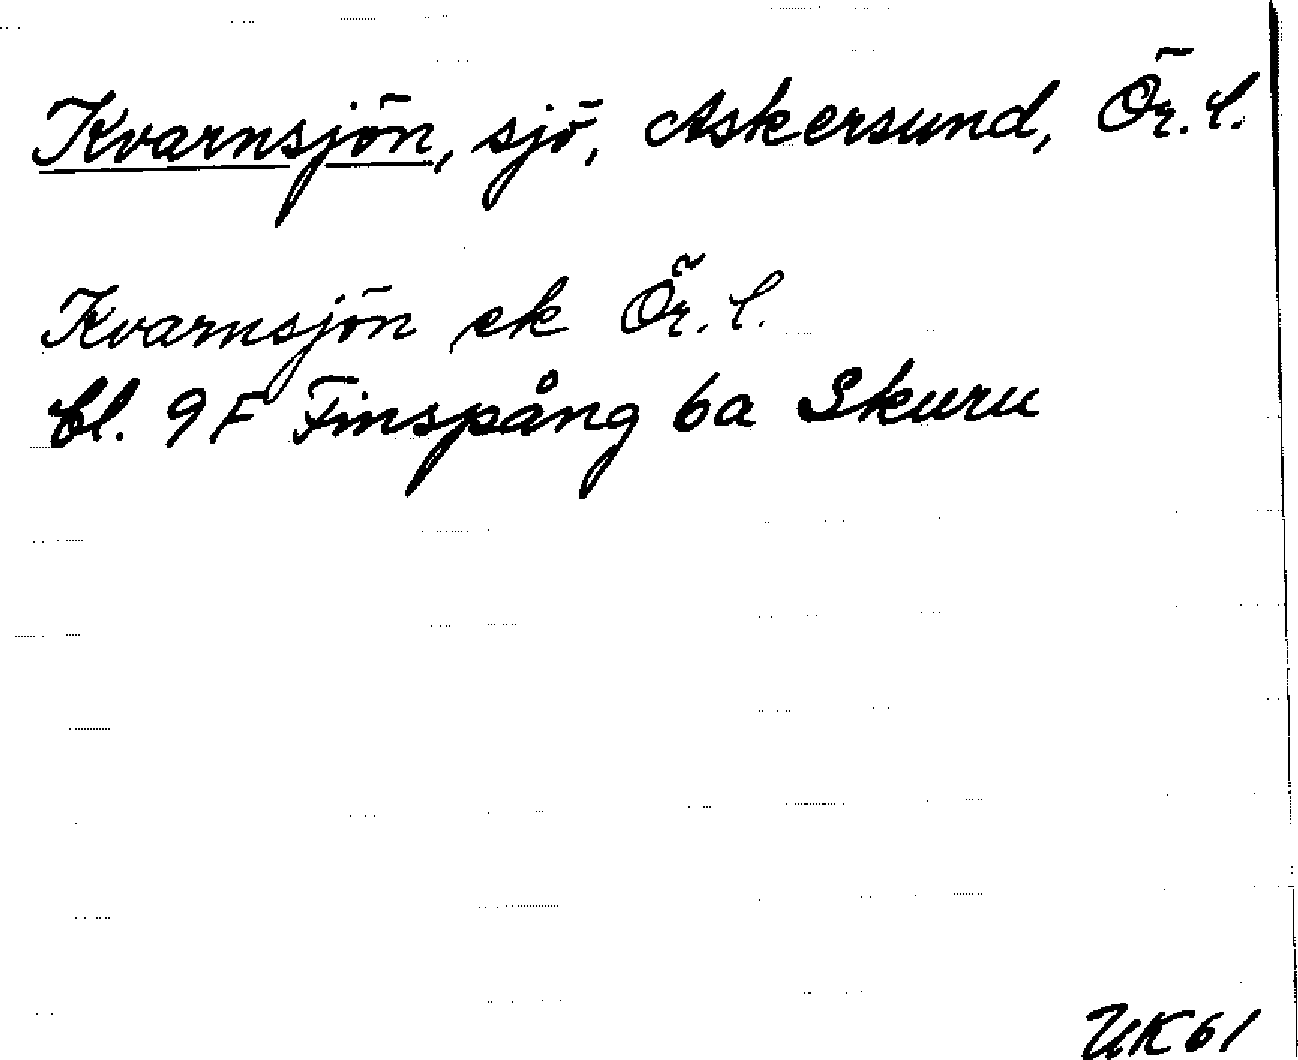 Kvarnsjön, sjö, Askersund, Ör. l.
Kvarnsjön ek Ör. l.
bl. 9F Finspång 6a Skuru
UK61